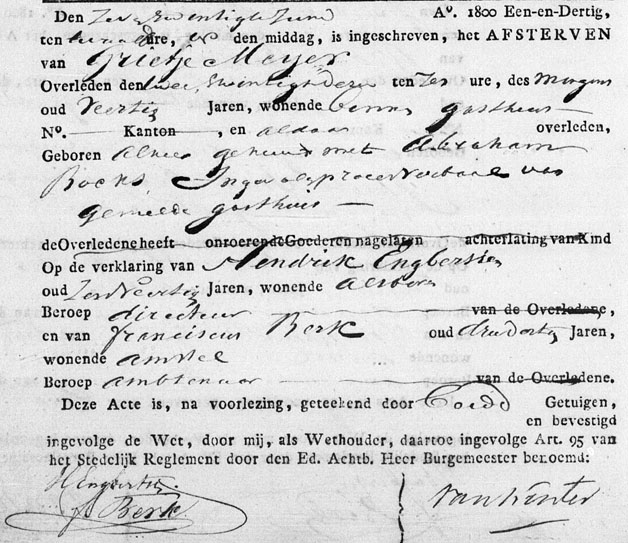 Den Zes & twintigste Juny A°. 1800 Een-en-Dertig,
ten ure, des den middag, is ingeschreven, het AFSTERVEN
van Grietje Meyer
Overleden den twee & twintigste dezer ten Zes ure, des morgens
oud Veertig Jaren, wonende binnen gasthuis
N°. — Kanton —, en aldaar overleden,
Geboren alhier gehuwd met Abraham
Ingevolge procesverbaal van
gemelde gasthuis —
de Overledene heeft — onroerende Goederen nagelaten — achterlating van Kind
Op de verklaring van Hendrik Engbertsen
oud Zes & Veertig Jaren, wonende
Beroep directeur — van de Overledene,
en van franciscus Berk oud drie & dertig Jaren,
wonende amstel
Beroep ambtenaar — van de Overledene.
Deze Acte is, na voorlezing, geteekend door Getuigen,
en bevestigd
ingevolge de Wet, door mij, als Wethouder, daartoe ingevolge Art. 95 van
het Stedelijk Reglement door den Ed. Achtb. Heer Burgemeester benoemd:
F Berk